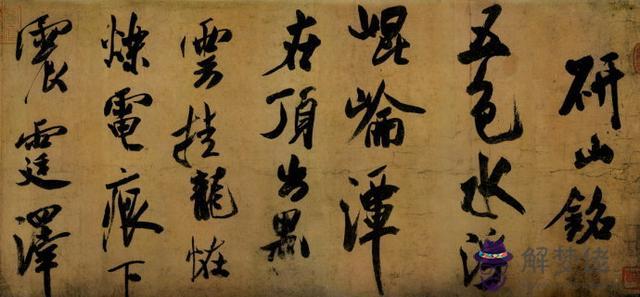 研山銘
五色水浮
崐崘潭
在頂出黑
雲挂龍恠
爍電痕下
震霆澤
解梦佬